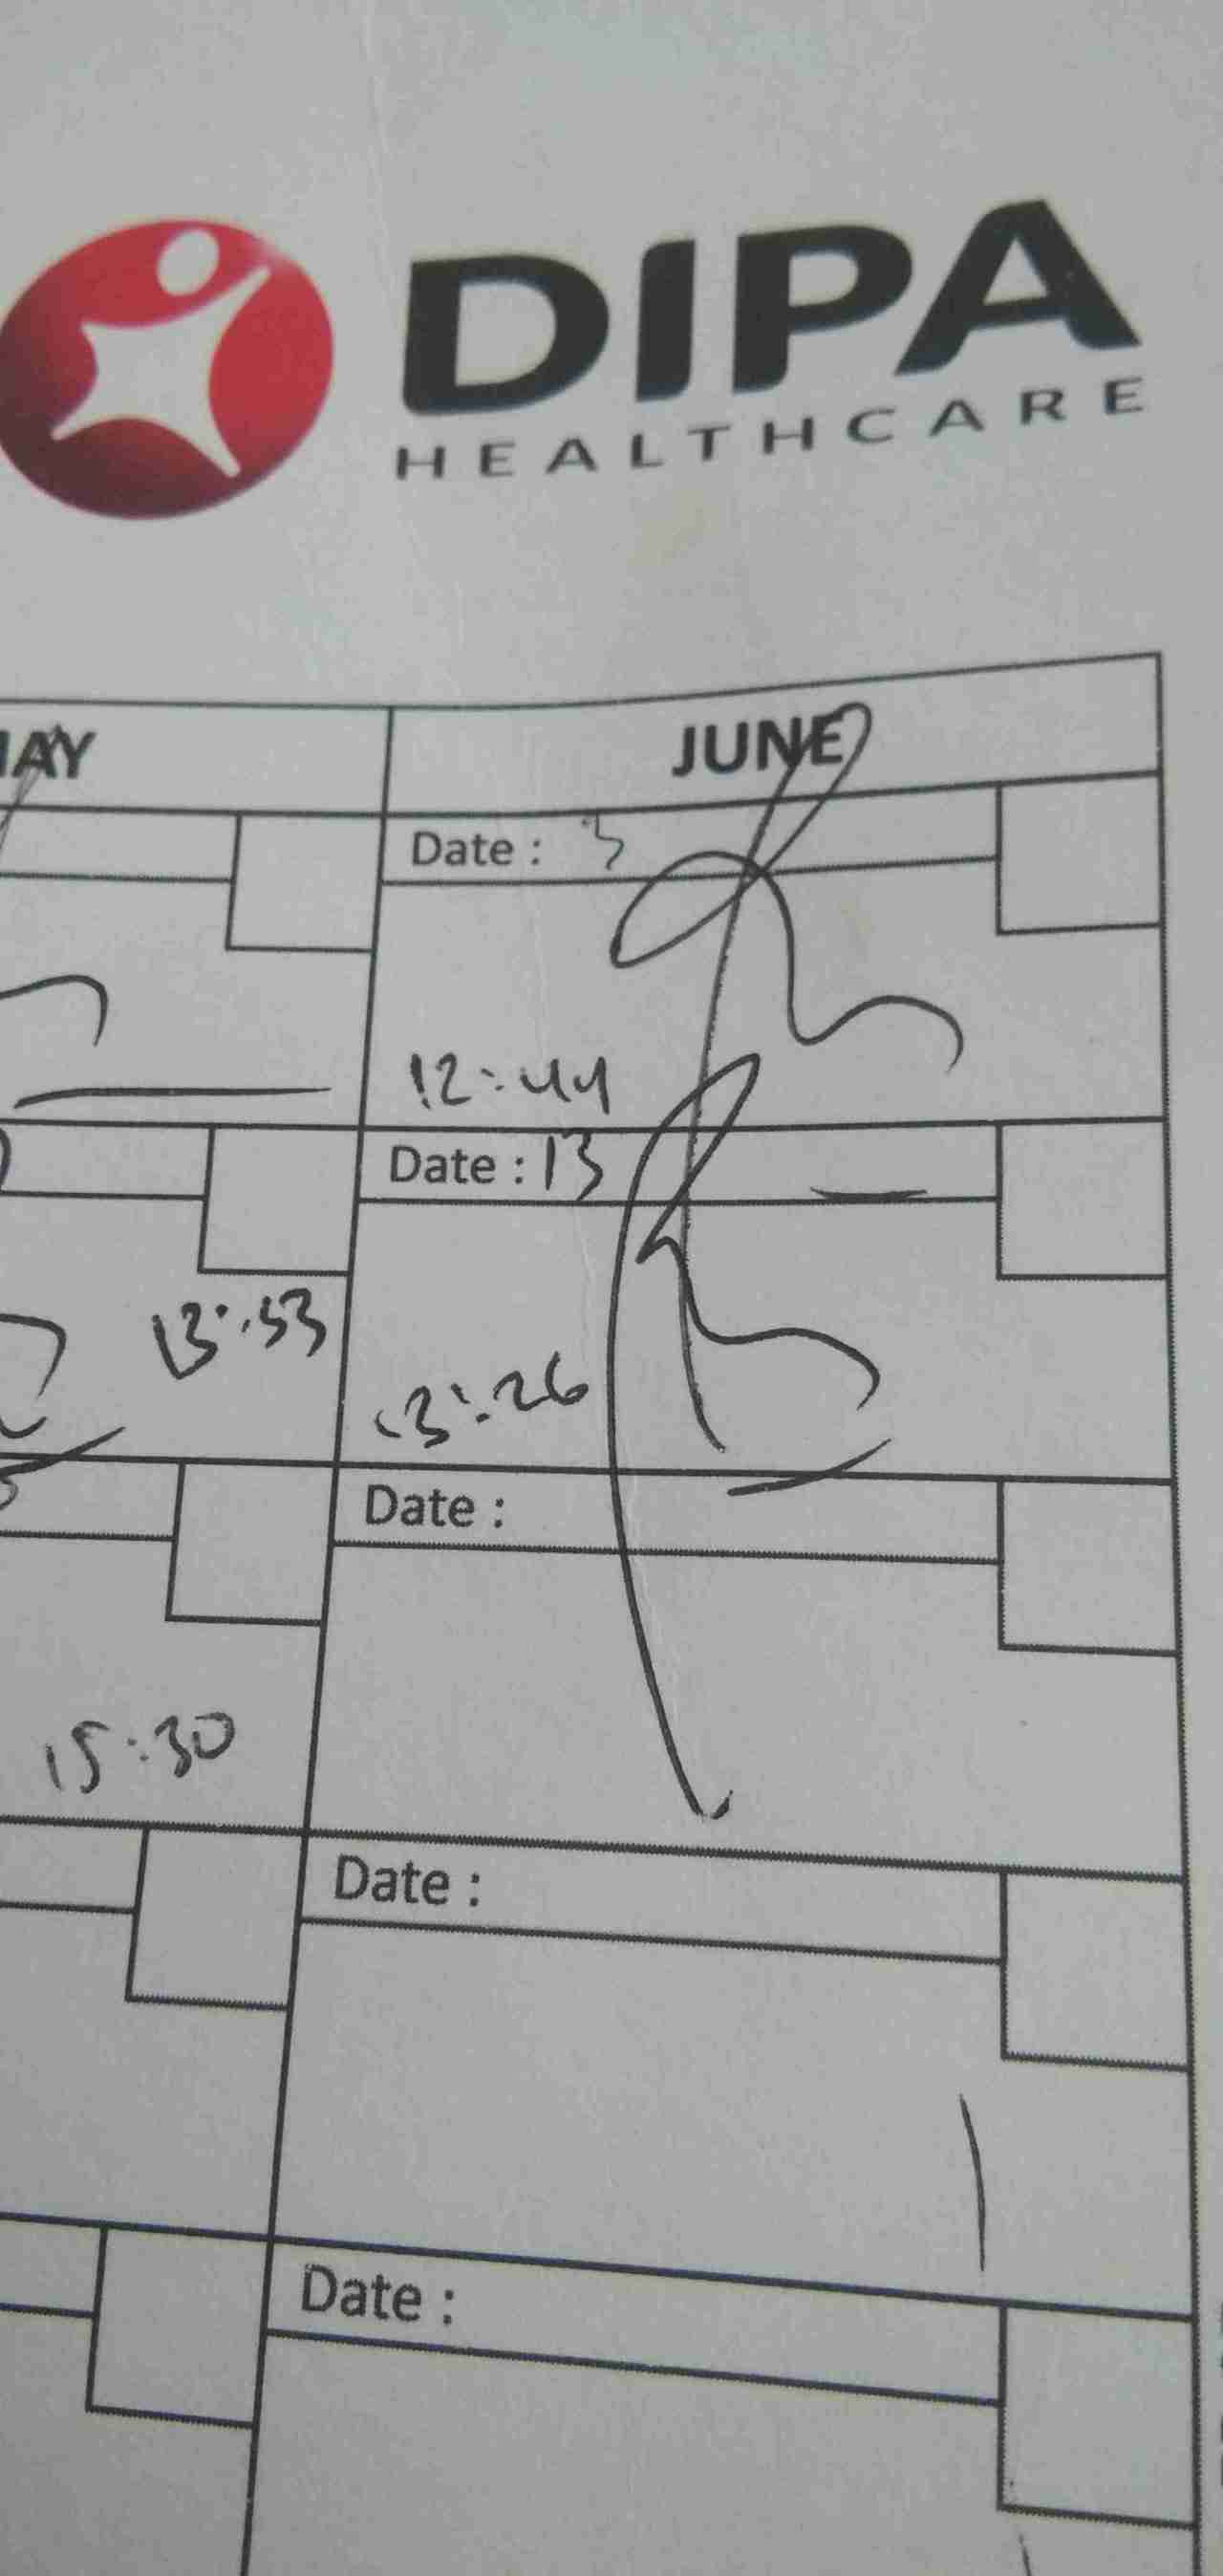 DIPA
HEALTHCARE
JUNE
Date :
12:44
Date : 13
13:53
13:26
Date :
15:30
Date :
Date :